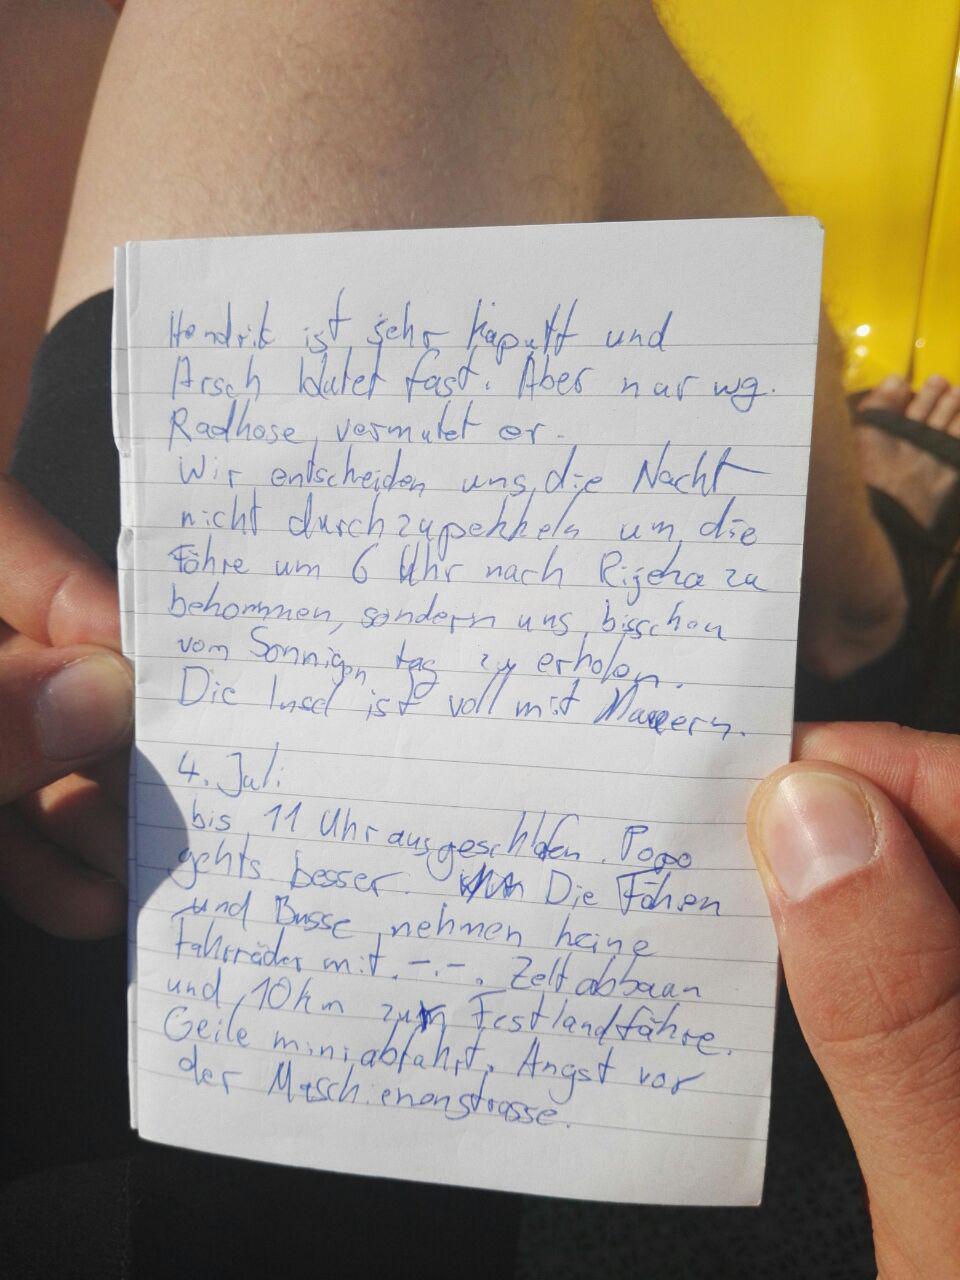 Hendrik ist sehr kaputt und
Arsch blutet fast. Aber nur wg.
Radhose, vermutet er.
Wir entscheiden uns, die Nacht
nicht durchzupekkeln um die
Fähre um 6 Uhr nach Rijeka zu
bekommen, sondern uns bisschen
vom Sonnigen tag zu erholen.
Die Insel ist voll mit Mauern.
4. Juli
bis 11 Uhr ausgeschlafen. Popo
gehts besser. Die Fähren
und Busse nehmen keine
Fahrräder mit. -.-. Zelt abbaun
und 10km zur Festlandfähre.
Geile miniabfahrt. Angst vor
der Maschienenstrasse.